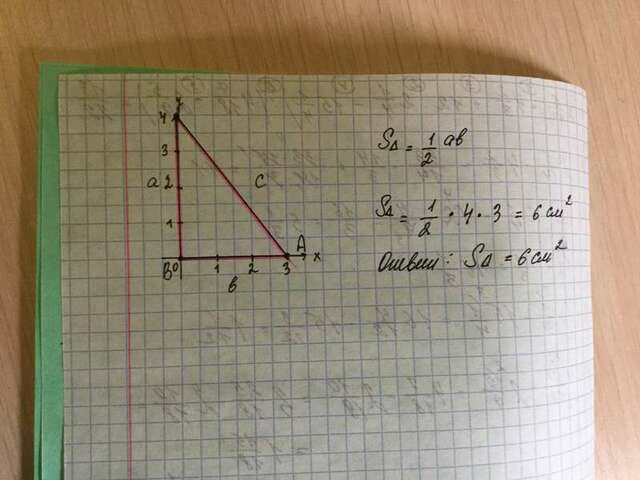 y
4
3
a 2 c
1
A
B 0 1 2 3 x
в
S∆ = 1/2 ab
S∆ = 1/2 • 4 • 3 = 6 см²
Ответ: S∆ = 6 см²